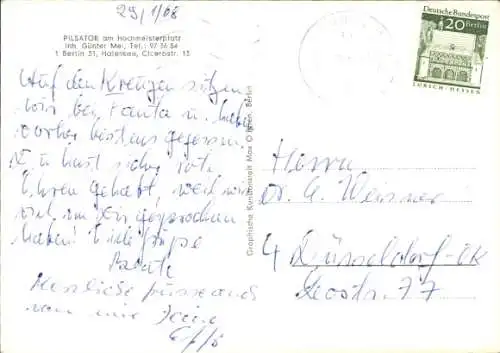 29/1/68
PILSATOR am Hochmeisterplatz
Inh. Günter Mei, Tel.: 97 36 84
1 Berlin 31, Halensee, Cicerostr. 15
Auf den Kreuzen sitzen
wir bei Fanta u. haben
vorher bestens gegessen.
Du hast sicher rote
Ohren gehabt, weil wir
viel von Dir gesprochen
haben! Viele Grüße
Beate
Herzliche Grüsse auch
von
Graphische Kunstanstalt Max O Berlin
DEUTSCHE BUNDESPOST
20 Berlin
LORSCH/HESSEN
Herrn
Dr. G. Weisner
4 Düsseldorf-OK
Leostr. 77